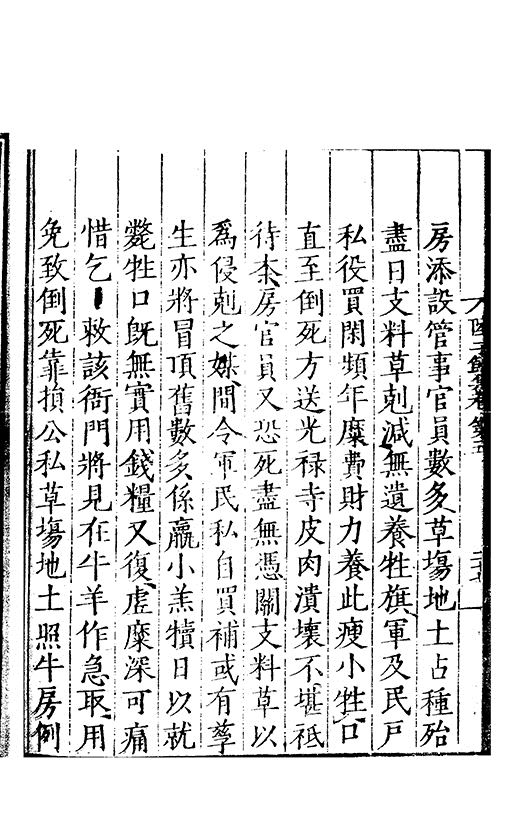 房添設管事官員數多草塲地土占種殆
盡日支料草剋減無遺養牲旗軍及民戸
私役買閑頻年糜費財力養此瘦小牲口
直至倒死方送光禄寺皮肉潰壞不堪祗
待柰房官員又恐死盡無憑關支料草以
爲侵剋之媒間令軍民私自買補或有孳
生亦將冒頂舊數多係羸小羔犢日以就
斃牲口旣無實用錢糧又復虛糜深可痛
惜乞敕該衙門將見在牛羊作急取用
免致倒死靠損公私草塲地土照牛房例